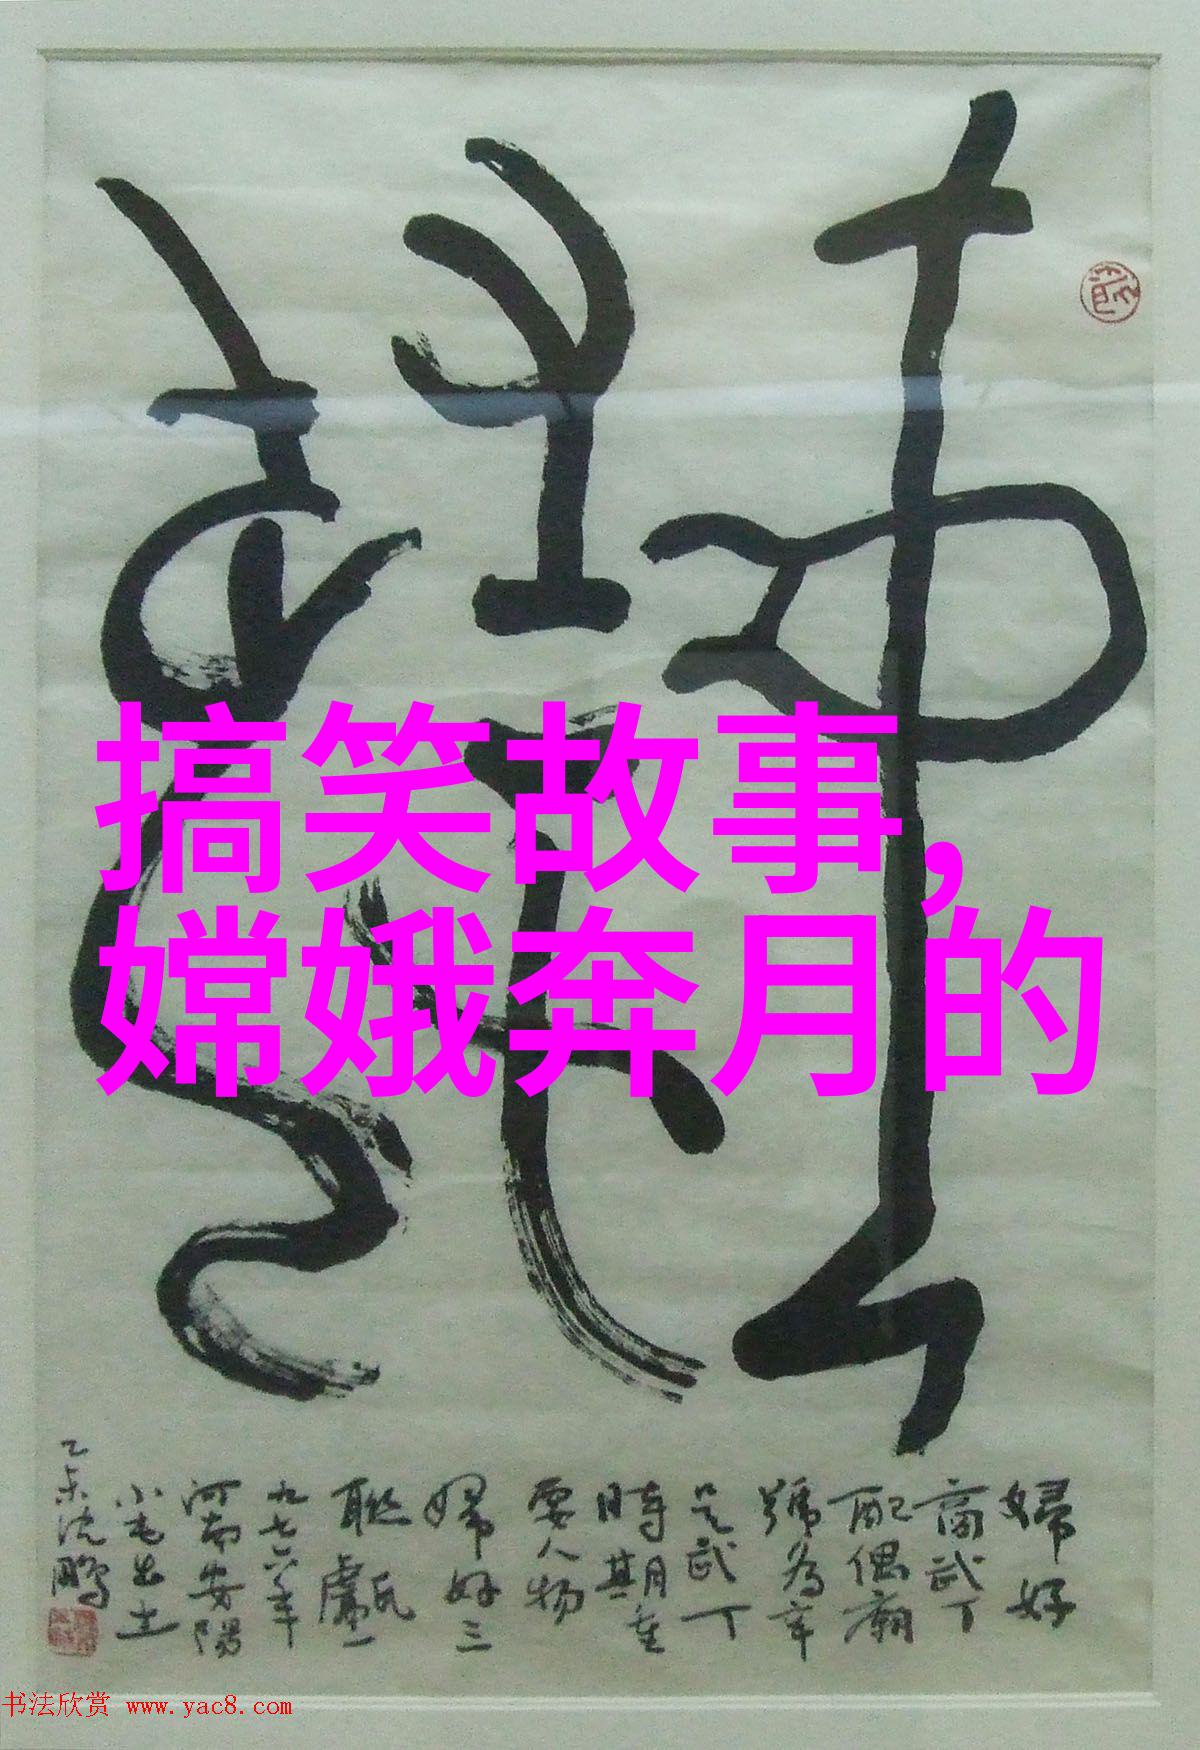 搞笑故事,
嫦娥奔月的
婦好
商武丁
配偶廟
號為辛
是武丁
時期重
要人物
婦好三
聯甗一
九七六年
河南安陽
小屯出土
乙未沈鵬
书法欣赏 www.yac8.com